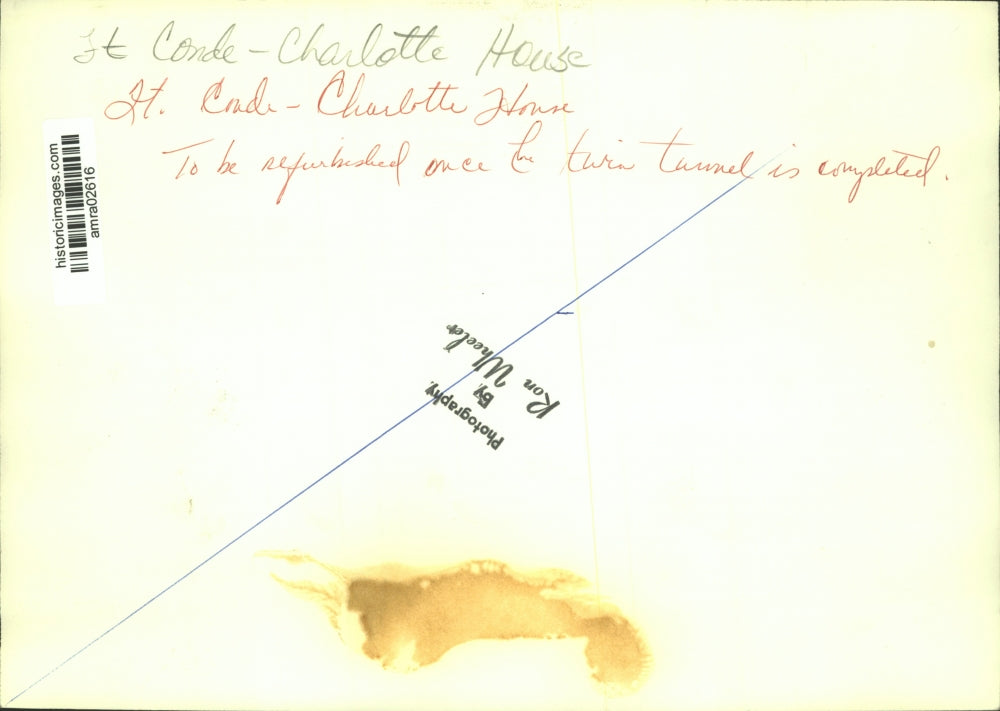 Ft Conde-Charlotte House
Ft. Conde-Charlotte House
To be refurbished once the twin tunnel is completed.
historicimages.com
amra02616
Photography,
By,
Ron Wheeler